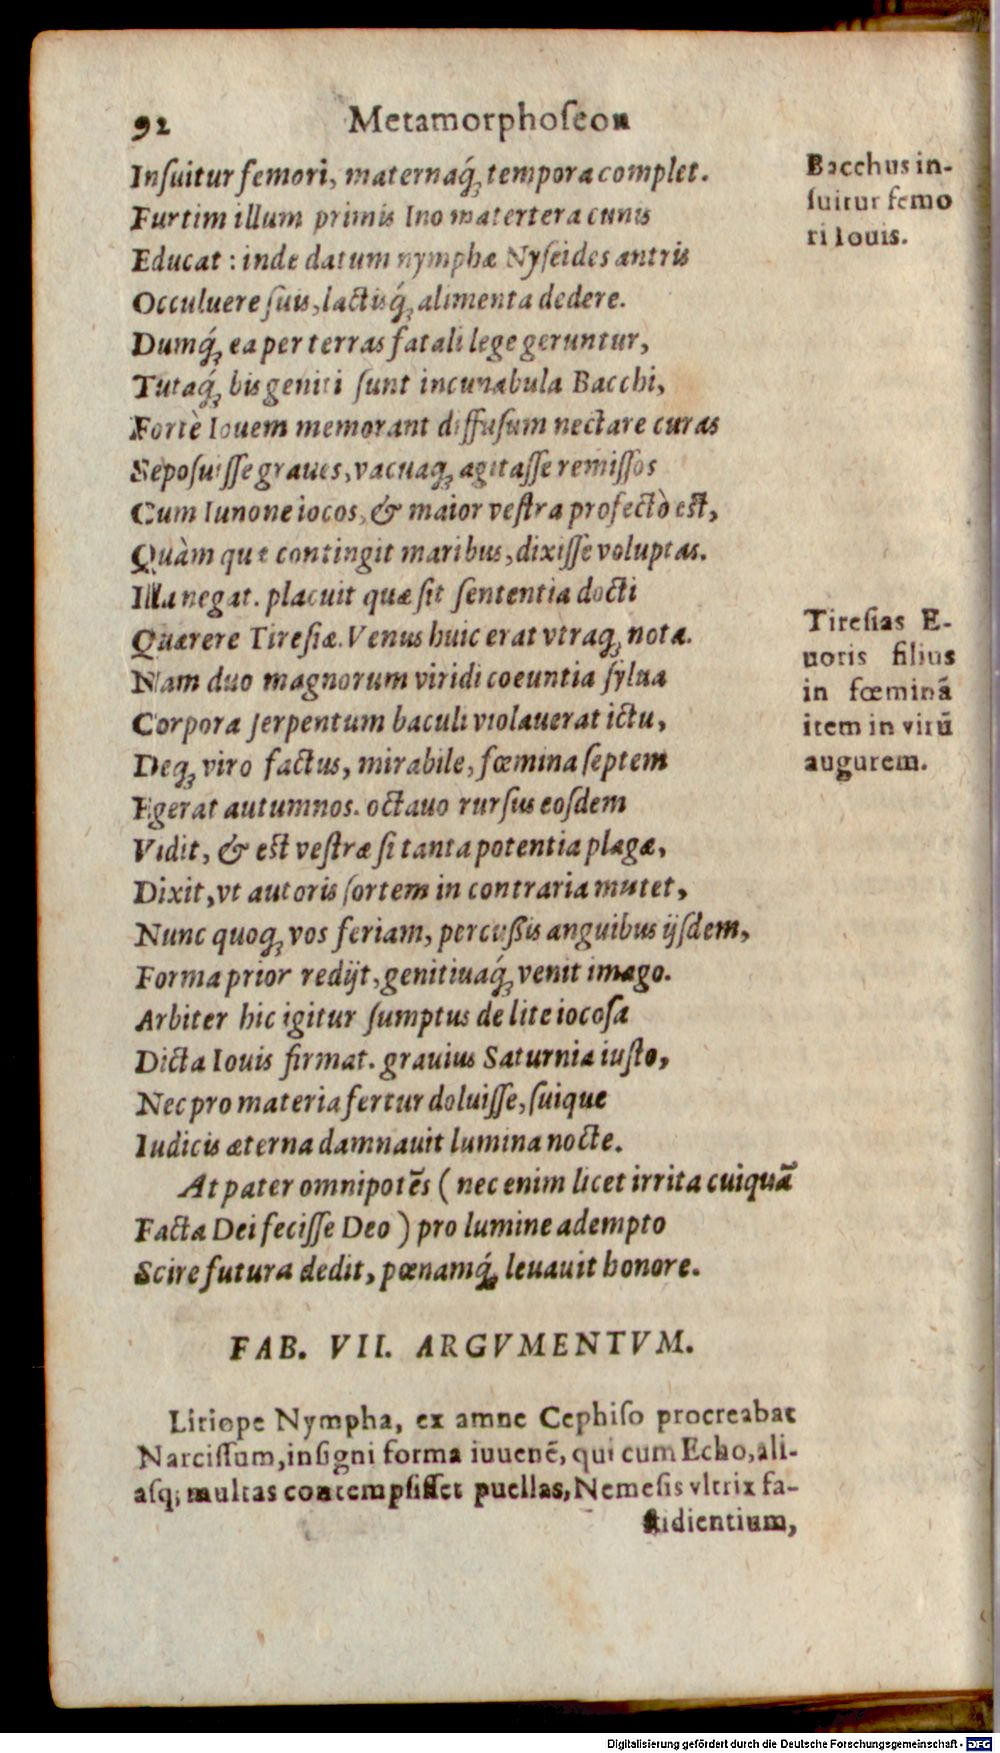 92 Metamorphoſeon
Inſuitur femori, maternaq́; tempora complet.
Furtim illum primis Ino matertera cunis
Educat : inde datum nymphæ Nyſeides antris
Occuluere ſuis, lactisq́; alimenta dedere.
Dumq́; ea per terras fatali lege geruntur,
Tutaq́; bis geniti ſunt incunabula Bacchi,
Fortè Iouem memorant diffuſum nectare curas
Sepoſuiſſe graues, vacuaq; agitaſſe remiſſos
Cum Iunone iocos, & maior veſtra profectò eſt,
Quàm quæ contingit maribus, dixiſſe voluptas.
Illa negat. placuit quæ ſit ſententia docti
Quærere Tireſiæ. Venus huic erat vtraq; nota.
Nam duo magnorum viridi coeuntia ſylua
Corpora ſerpentum baculi violauerat ictu,
Deq; viro factus, mirabile, fœmina ſeptem
Egerat autumnos. octauo rurſus eoſdem
Vidit, & eſt veſtræ ſi tanta potentia plagæ,
Dixit, vt autoris ſortem in contraria mutet,
Nunc quoq; vos feriam, percußis anguibus ijſdem,
Forma prior redijt, genitiuaq́; venit imago.
Arbiter hic igitur ſumptus de lite iocoſa
Dicta Iouis firmat. grauius Saturnia iuſto,
Nec pro materia fertur doluiſſe, ſuique
Iudicis æterna damnauit lumina nocte.
At pater omnipotẽs ( nec enim licet irrita cuiquã
Facta Dei feciſſe Deo ) pro lumine adempto
Scire futura dedit, pœnamq́; leuauit honore.
Bacchus in-
ſuitur femo
ri Iouis.
Tireſias E-
uoris filius
in fœminã
item in virũ
augurem.
FAB. VII. ARGVMENTVM.
Liriope Nympha, ex amne Cephiſo procreabat
Narciſſum, inſigni forma iuuenẽ, qui cum Echo, ali-
aſq; multas contempſiſſet puellas, Nemeſis vltrix fa-
ſtidientium,
Digitalisierung gefördert durch die Deutsche Forschungsgemeinschaft - DFG